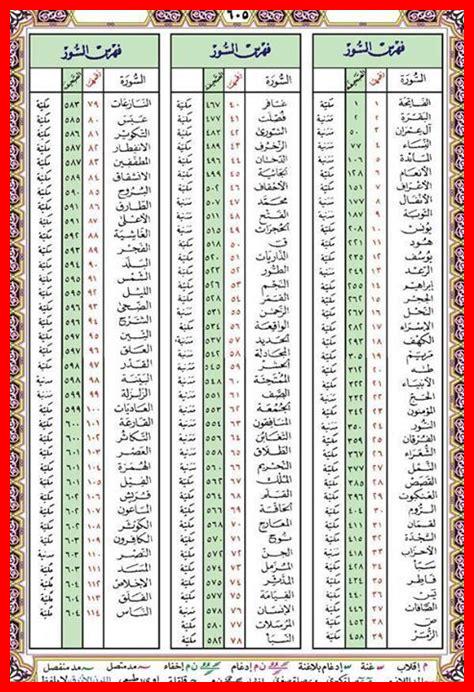 ٦٠٥
فهرس السور
السورة رقمها الصفحة
الفاتحة ١ ١ مكية
البقرة ٢ ٢ مدنية
آل عمران ٣ ٥٠ مدنية
النساء ٤ ٧٧ مدنية
المائدة ٥ ١٠٦ مدنية
الأنعام ٦ ١٢٨ مكية
الأعراف ٧ ١٥١ مكية
الأنفال ٨ ١٧٧ مدنية
التوبة ٩ ١٨٧ مدنية
يونس ١٠ ٢٠٨ مكية
هود ١١ ٢٢١ مكية
يوسف ١٢ ٢٣٥ مكية
الرعد ١٣ ٢٤٩ مدنية
إبراهيم ١٤ ٢٥٥ مكية
الحجر ١٥ ٢٦٢ مكية
النحل ١٦ ٢٦٧ مكية
الإسراء ١٧ ٢٨٢ مكية
الكهف ١٨ ٢٩٣ مكية
مريم ١٩ ٣٠٥ مكية
طه ٢٠ ٣١٢ مكية
الأنبياء ٢١ ٣٢٢ مكية
الحج ٢٢ ٣٣٢ مدنية
المؤمنون ٢٣ ٣٤٢ مكية
النور ٢٤ ٣٥٠ مدنية
الفرقان ٢٥ ٣٥٩ مكية
الشعراء ٢٦ ٣٦٧ مكية
النمل ٢٧ ٣٧٧ مكية
القصص ٢٨ ٣٨٥ مكية
العنكبوت ٢٩ ٣٩٦ مكية
الروم ٣٠ ٤٠٤ مكية
لقمان ٣١ ٤١١ مكية
السجدة ٣٢ ٤١٥ مكية
الأحزاب ٣٣ ٤١٨ مدنية
سبأ ٣٤ ٤٢٨ مكية
فاطر ٣٥ ٤٣٤ مكية
يس ٣٦ ٤٤٠ مكية
الصافات ٣٧ ٤٤٦ مكية
ص ٣٨ ٤٥٣ مكية
الزمر ٣٩ ٤٥٨ مكية
فهرس السور
السورة رقمها الصفحة
غافر ٤٠ ٤٦٧ مكية
فصلت ٤١ ٤٧٧ مكية
الشورى ٤٢ ٤٨٣ مكية
الزخرف ٤٣ ٤٨٩ مكية
الدخان ٤٤ ٤٩٦ مكية
الجاثية ٤٥ ٤٩٩ مكية
الأحقاف ٤٦ ٥٠٢ مكية
محمد ٤٧ ٥٠٧ مدنية
الفتح ٤٨ ٥١١ مدنية
الحجرات ٤٩ ٥١٥ مدنية
ق ٥٠ ٥١٨ مكية
الذاريات ٥١ ٥٢٠ مكية
الطور ٥٢ ٥٢٣ مكية
النجم ٥٣ ٥٢٦ مكية
القمر ٥٤ ٥٢٨ مكية
الرحمن ٥٥ ٥٣١ مدنية
الواقعة ٥٦ ٥٣٤ مكية
الحديد ٥٧ ٥٣٧ مدنية
المجادلة ٥٨ ٥٤٢ مدنية
الحشر ٥٩ ٥٤٥ مدنية
الممتحنة ٦٠ ٥٤٩ مدنية
الصف ٦١ ٥٥١ مدنية
الجمعة ٦٢ ٥٥٣ مدنية
المنافقون ٦٣ ٥٥٤ مدنية
التغابن ٦٤ ٥٥٦ مدنية
الطلاق ٦٥ ٥٥٨ مدنية
التحريم ٦٦ ٥٦٠ مدنية
الملك ٦٧ ٥٦٢ مكية
القلم ٦٨ ٥٦٤ مكية
الحاقة ٦٩ ٥٦٦ مكية
المعارج ٧٠ ٥٦٨ مكية
نوح ٧١ ٥٧٠ مكية
الجن ٧٢ ٥٧٢ مكية
المزمل ٧٣ ٥٧٤ مكية
المدثر ٧٤ ٥٧٥ مكية
القيامة ٧٥ ٥٧٧ مكية
الإنسان ٧٦ ٥٧٨ مدنية
المرسلات ٧٧ ٥٨٠ مكية
النبأ ٧٨ ٥٨٢ مكية
فهرس السور
السورة رقمها الصفحة
النازعات ٧٩ ٥٨٣ مكية
عبس ٨٠ ٥٨٥ مكية
التكوير ٨١ ٥٨٦ مكية
الانفطار ٨٢ ٥٨٧ مكية
المطففين ٨٣ ٥٨٧ مكية
الانشقاق ٨٤ ٥٨٩ مكية
البروج ٨٥ ٥٩٠ مكية
الطارق ٨٦ ٥٩١ مكية
الأعلى ٨٧ ٥٩١ مكية
الغاشية ٨٨ ٥٩٢ مكية
الفجر ٨٩ ٥٩٣ مكية
البلد ٩٠ ٥٩٤ مكية
الشمس ٩١ ٥٩٥ مكية
الليل ٩٢ ٥٩٥ مكية
الضحى ٩٣ ٥٩٦ مكية
الشرح ٩٤ ٥٩٦ مكية
التين ٩٥ ٥٩٧ مكية
العلق ٩٦ ٥٩٧ مكية
القدر ٩٧ ٥٩٨ مكية
البينة ٩٨ ٥٩٨ مدنية
الزلزلة ٩٩ ٥٩٩ مدنية
العاديات ١٠٠ ٥٩٩ مكية
القارعة ١٠١ ٦٠٠ مكية
التكاثر ١٠٢ ٦٠٠ مكية
العصر ١٠٣ ٦٠١ مكية
الهمزة ١٠٤ ٦٠١ مكية
الفيل ١٠٥ ٦٠١ مكية
قريش ١٠٦ ٦٠٢ مكية
الماعون ١٠٧ ٦٠٢ مكية
الكوثر ١٠٨ ٦٠٢ مكية
الكافرون ١٠٩ ٦٠٣ مكية
النصر ١١٠ ٦٠٣ مدنية
المسد ١١١ ٦٠٣ مكية
الإخلاص ١١٢ ٦٠٤ مكية
الفلق ١١٣ ٦٠٤ مكية
الناس ١١٤ ٦٠٤ مكية
م إقلاب غنة إدغام بلاغنة ن م إدغام ن م إخفاء مد متصل مد منفصل